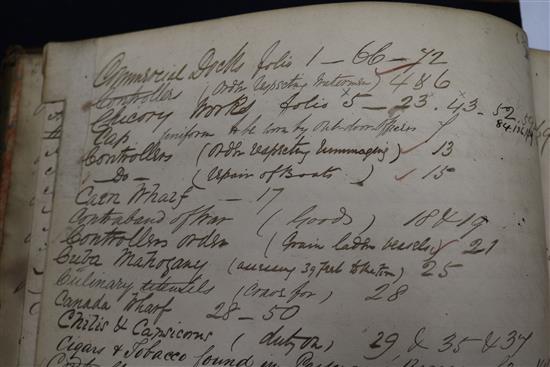 Commercial Docks folio 1 - 66 - 72
Controllers (Order respecting Watermen) 4 & 6
Chicory Works folio 5 - 23. 43 - 52.
84.
Cap uniform to be worn by Outdoor Officers
Controllers (Order respecting rummaging) 13
- Do - (repair of Boats) 15
Caen Wharf - 17
Contraband of War (Goods) 18 & 19
Controllers order (Grain laden vessels) 21
Cuba Mahogany (39 feet to the ton) 25
Culinary utensils (Coaos for) 28
Canada Wharf 28 - 50
Chilis & Capsicums (duty on) 29 & 35 & 37
Cigars & Tobacco found in